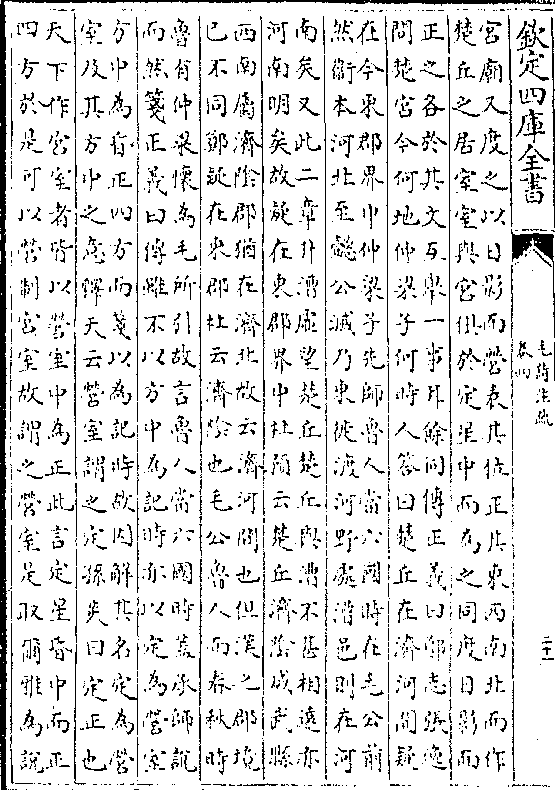 欽定四庫全書
毛詩注疏
卷四
二十一
宫廟又度之以日影而營表其位正其東西南北而作
楚丘之居室室與宫俱於定星中而為之同度日影而
正之各於其文互舉一事耳餘同傳正義曰鄭志張逸
問楚宫今何地仲梁子何時人答曰楚丘在濟河間疑
在今東郡界中仲梁子先師魯人當六國時在毛公前
然衛本河北至懿公滅乃東徙渡河野處漕邑則在河
南矣又此二章升漕虚望楚丘楚丘與漕不甚相遠亦
河南明矣故疑在東郡界中杜預云楚丘濟隂成武縣
西南屬濟隂郡猶在濟北故云濟河間也但漢之郡境
已不同鄭疑在東郡杜云濟隂也毛公魯人而春秋時
魯有仲梁懷為毛所引故言魯人當六國時蓋承師説
而然箋正義曰傳雖不以方中為記時亦以定為營室
方中為視正四方而箋以為記時故因解其名定為營
室及其方中之意釋天云營室謂之定孫炎曰定正也
天下作宫室者皆以營室中為正此言定星昏中而正
四方於是可以營制宫室故謂之營室是取爾雅為説